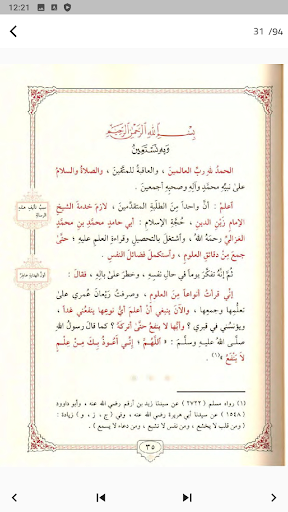 12:21
31 /94
بِسْمِ اللهِ الرَّحْمَنِ الرَّحِيمِ
وَبِهِ نَسْتَعِينُ
الحمدُ للهِ ربِّ العالمينَ ، والعاقبةُ للمتَّقينَ ، والصلاةُ والسلامُ
علىٰ نبيِّهِ محمَّدٍ وآلِهِ وصحبِهِ أجمعينَ .
اعلمْ : أنَّ واحداً مِنَ الطَّلَبةِ المتقدِّمينَ ، لازمَ خدمةَ الشيخِ
الإمامِ زينِ الدينِ ، حُجَّةِ الإسلامِ : أبي حامدٍ محمَّدِ بنِ محمدٍ
الغزاليِّ رحمَهُ اللهُ ، وأشتغلَ بالتحصيلِ وقراءةِ العلمِ عليهِ ؛ حتَّىٰ
جمعَ مِنْ دقائقِ العلومِ ، وأستكملَ فضائلَ النفسِ .
ثمَّ إنَّهُ تفكَّرَ يوماً في حالِ نفسِهِ ، وخطرَ علىٰ بالِهِ ، فقالَ :
إنِّي قرأتُ أنواعاً مِنَ العلومِ ، وصرفتُ رَيْعانَ عُمري علىٰ
تعلُّمِها وجمعِها ، والآنَ ينبغي أنْ أعلمَ أيُّ نوعِها ينفعُني غداً ،
ويؤنسُني في قبري ؟ وأيُّها لا ينفعُ حتَّىٰ أتركَهُ ؟ كما قالَ رسولُ اللهِ
صلَّى اللهُ عليهِ وسلَّمَ : « اللَّهُمَّ ؛ إِنِّي أَعُوذُ بِكَ مِنْ عِلْمٍ
لَا يَنْفَعُ »(١) .
(١) رواه مسلم ( ٢٧٢٢ ) عن سيدنا زيد بن أرقم رضي الله عنه ، وأبو داوود
( ١٥٤٨ ) عن سيدنا أبي هريرة رضي الله عنه ، وفي ( ج ، ز ، و ) زيادة :
( ومن قلب لا يخشع ، ومن نفس لا تشبع ، ومن دعاء لا يسمع ) .
٣٥